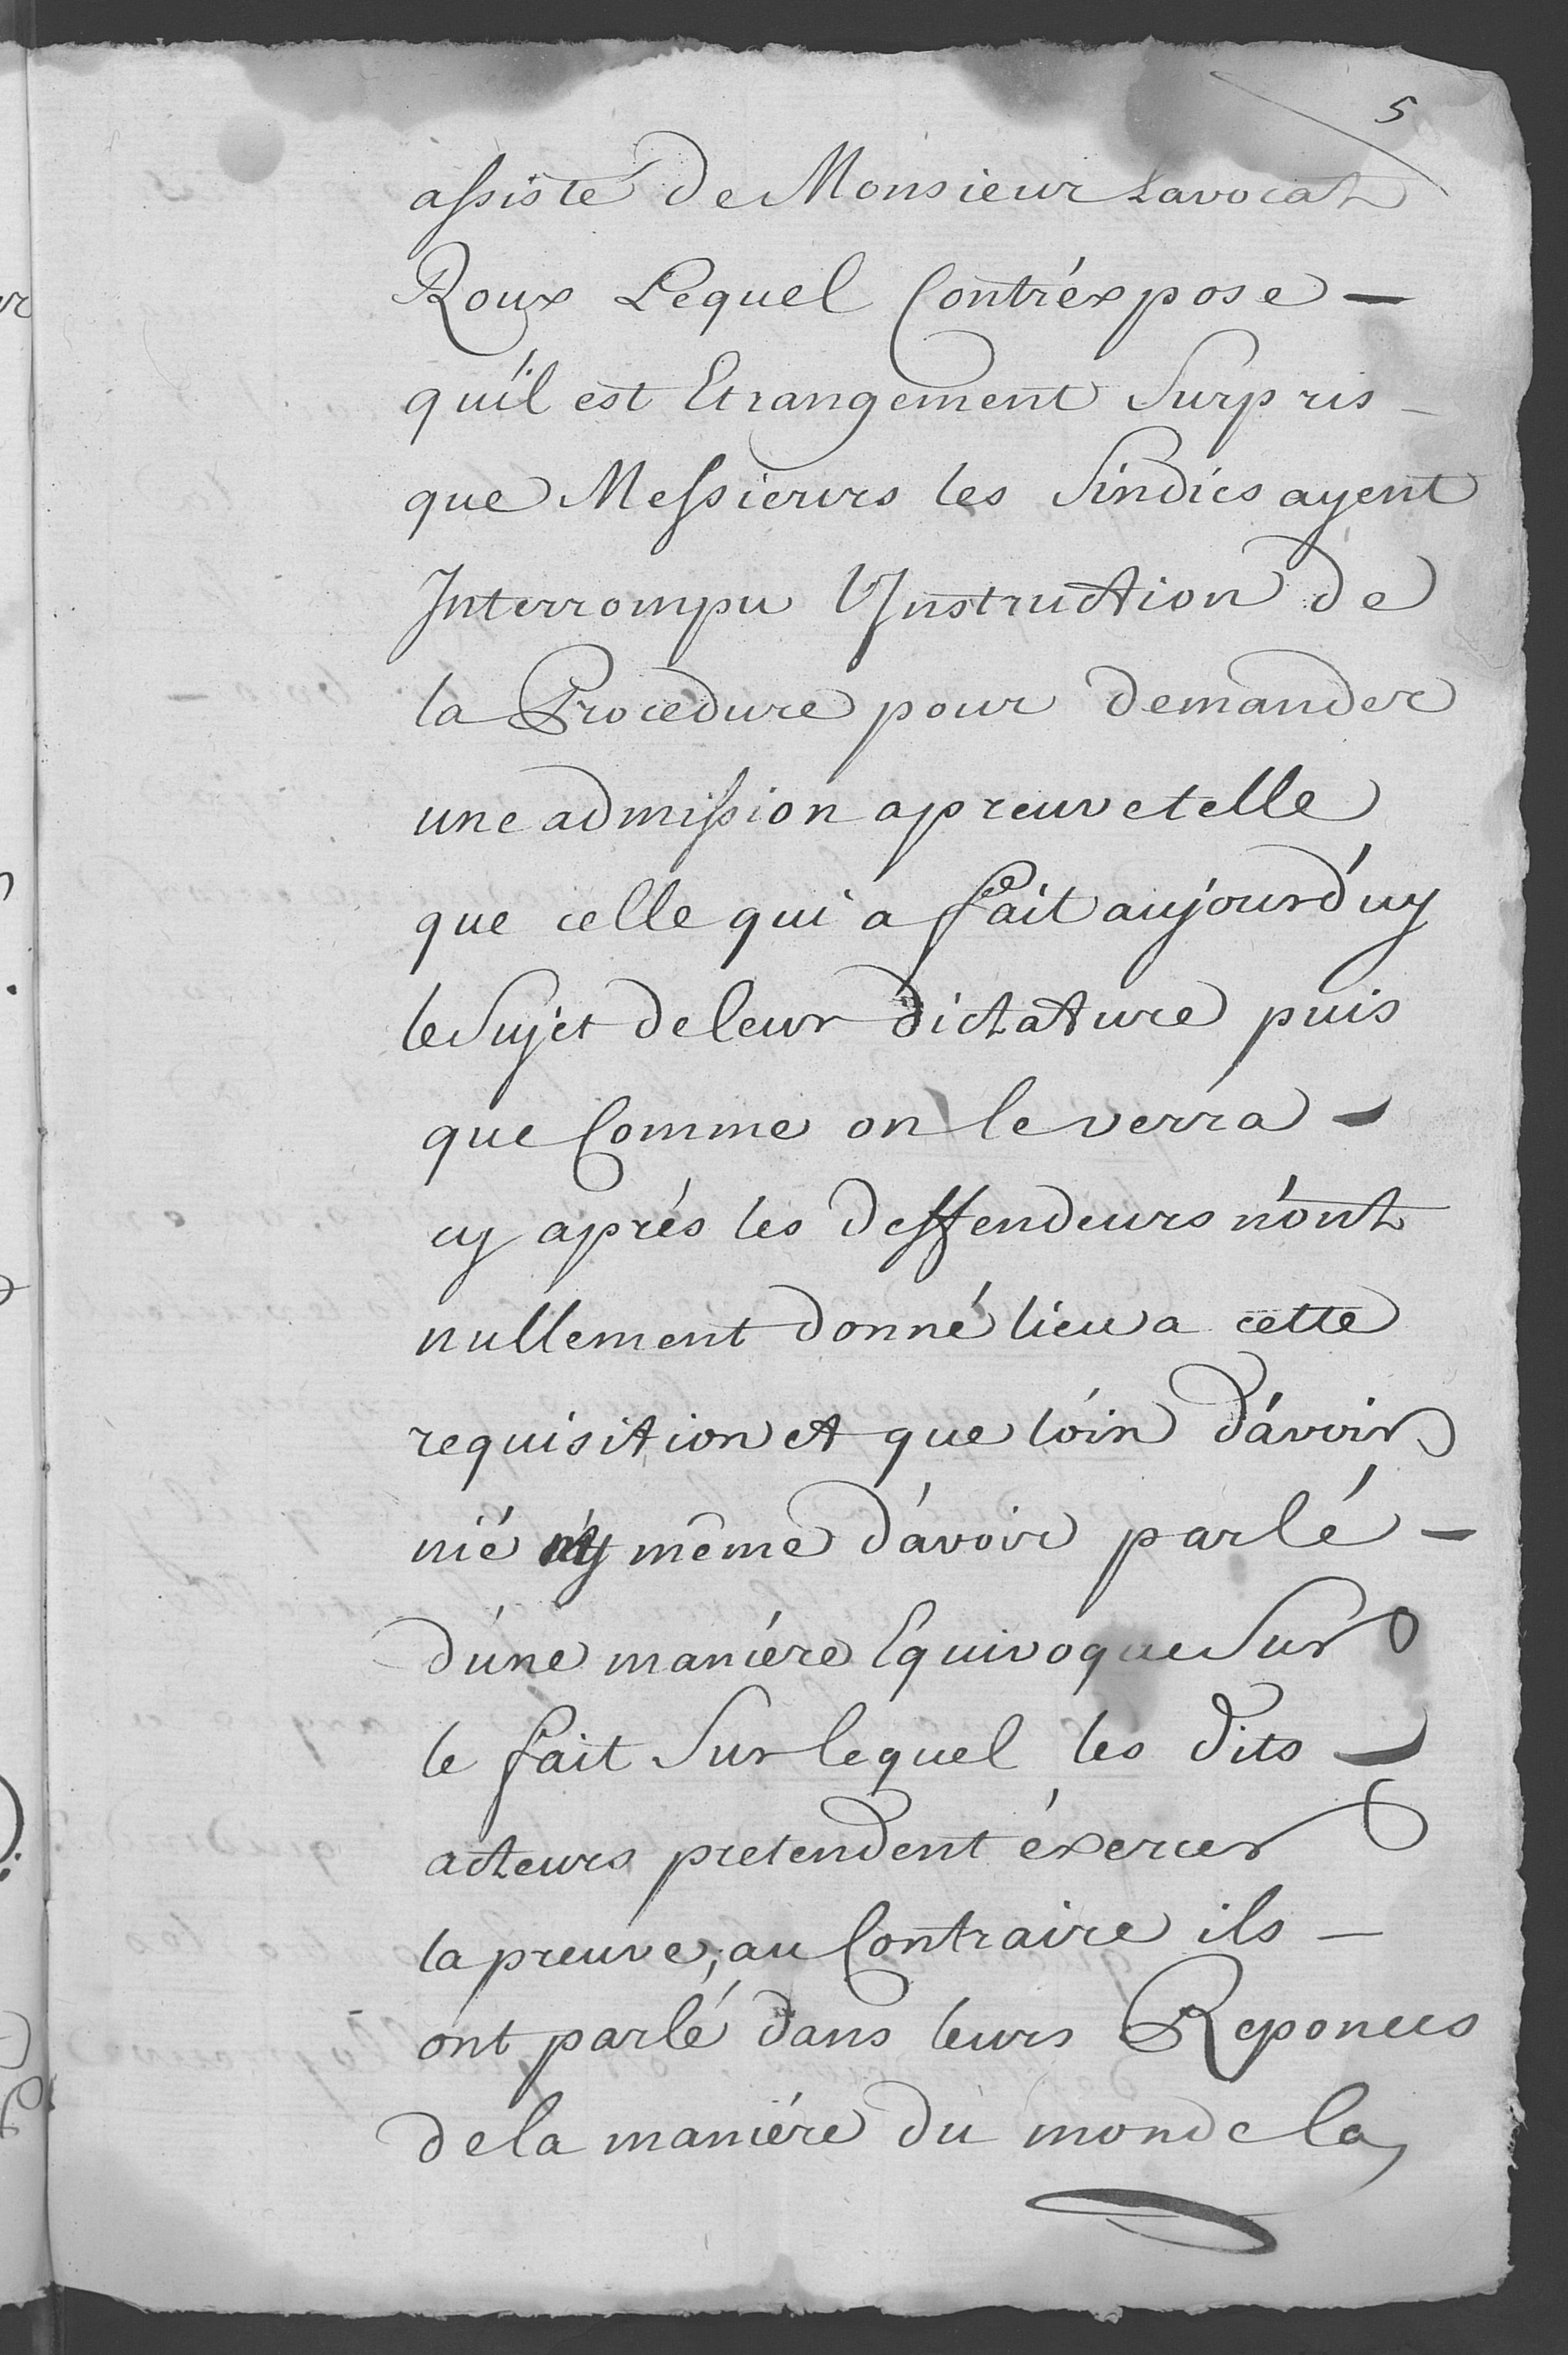 5
assisté de Monsieur Lavocat
Roux Lequel Contréxpose —
qu'il est Etrangement Surpris —
que Messieurs les Sindics ayent
Interrompu l'Instruction de
la Procedure pour demander
une admission apreuve telle
que celle qui a fait aujourd'uy
le Sujet de leur dictature puis
que Comme on le verra —
cy aprés les deffendeurs n'ont
nullement donné lieu a cette
requisition et que loin d'avoir
nié ny même d'avoir parlé —
d'une maniére Equivoque Sur
le fait Sur lequel les dits —
acteurs pretendent éxercer
la preuve, au Contraire ils —
ont parlé dans leurs Reponces
de la maniére du monde la